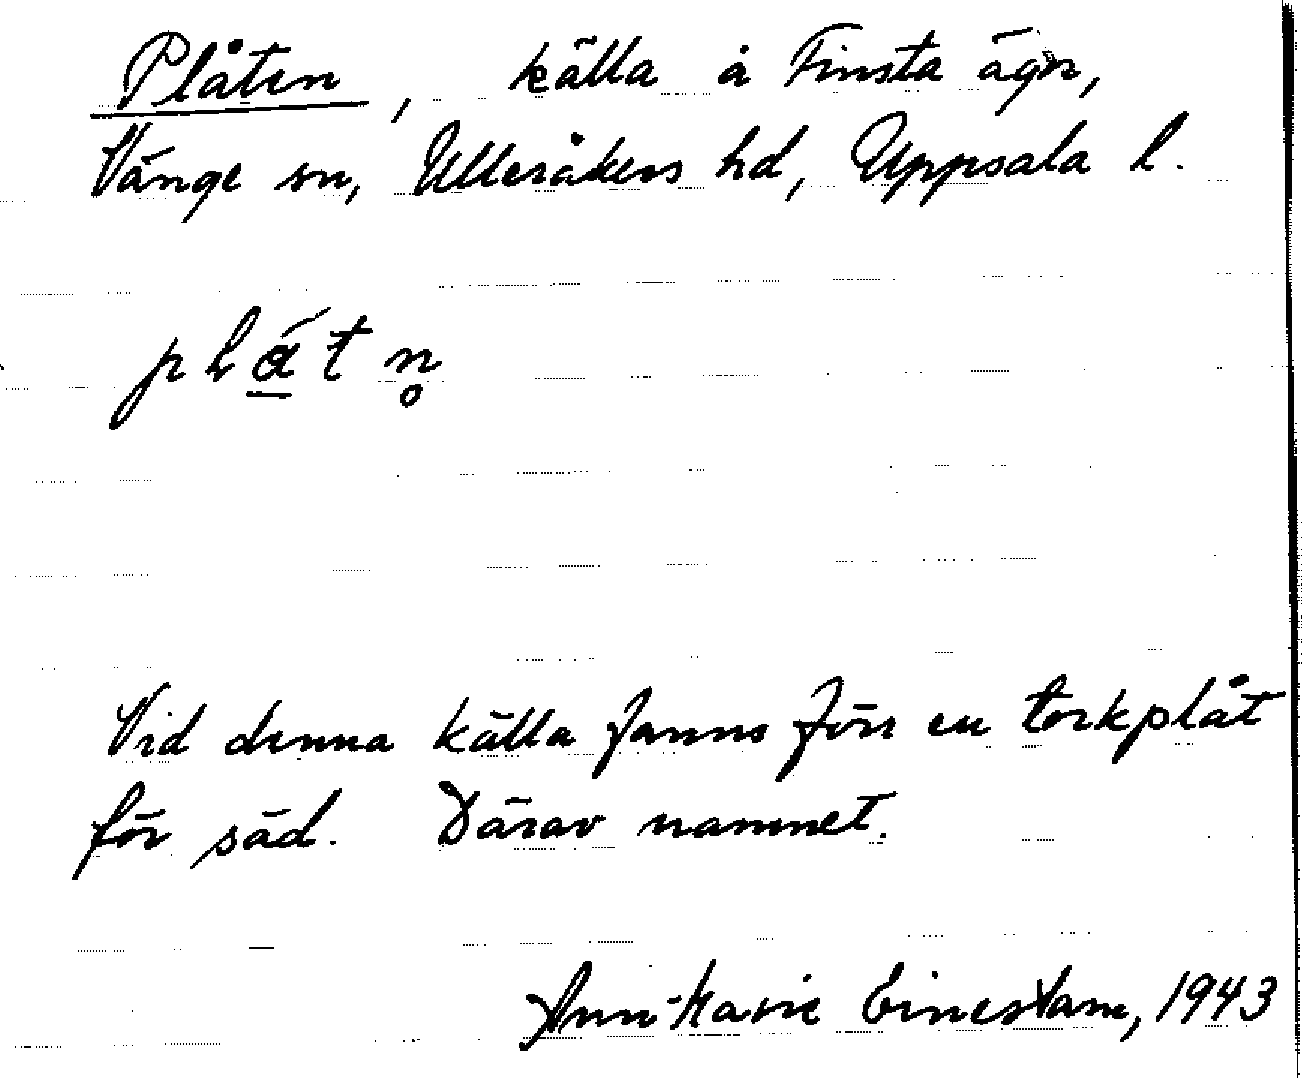 Plåten, källa å Finsta ägor,
Vänge sn, Ulleråkers hd, Uppsala l.
plåtn̥
Vid denna källa fanns förr en torkplåt
för säd. Därav namnet.
Ann-Marie Einestam, 1943